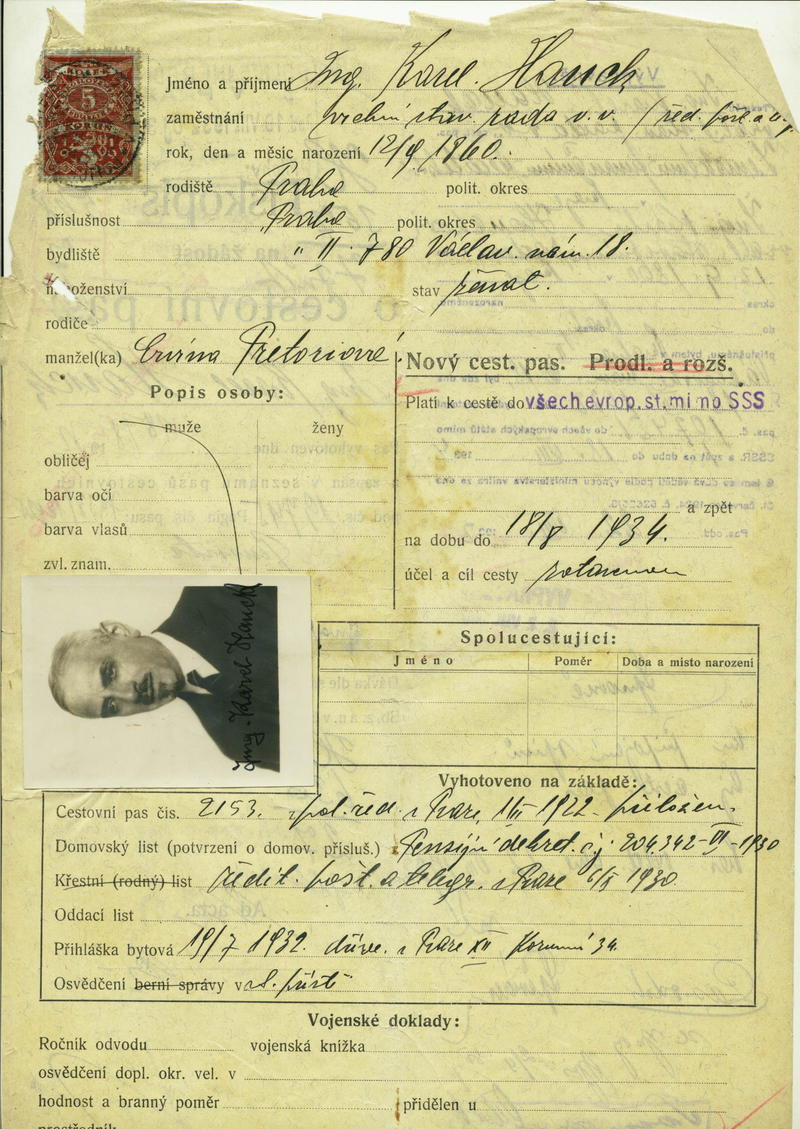 5
KORUN
Jméno a příjmení Ing. Karel Hauck
zaměstnání vrchní stav. rada v. v. / řed. pošt. a
rok, den a měsíc narození 12/9 1860.
rodiště Praha polit. okres
příslušnost Praha polit. okres
bydliště " II. 780 Václav. nám. 18.
náboženství stav ženat.
rodiče
manžel(ka) Pretoriové
Nový cest. pas. Prodl. a rozš.
Popis osoby:
Platí k cestě do všech evrop. st. mimo SSS
muže ženy
obličej
barva očí
a zpět
barva vlasů
na dobu do 18/8 1934.
zvl. znam.
účel a cíl cesty
Ing. Karel Hauck
Spolucestující:
Jméno Poměr Doba a místo narození
Vyhotoveno na základě:
Cestovní pas čís. 2153. pol. řed. v Praze, 1/III 1922 přiložen
Domovský list (potvrzení o domov. přísluš.) Pensijní dekret č.j. 204.342-VI-1930
Křestní (rodný) list ředit. pošt. a telegr. v Praze 1930.
Oddací list
Přihláška bytová 19/7 1932. v Praze XII Korunní 34.
Osvědčení berní správy v
Vojenské doklady:
Ročník odvodu vojenská knížka
osvědčení dopl. okr. vel. v
hodnost a branný poměr přidělen u
prostředník